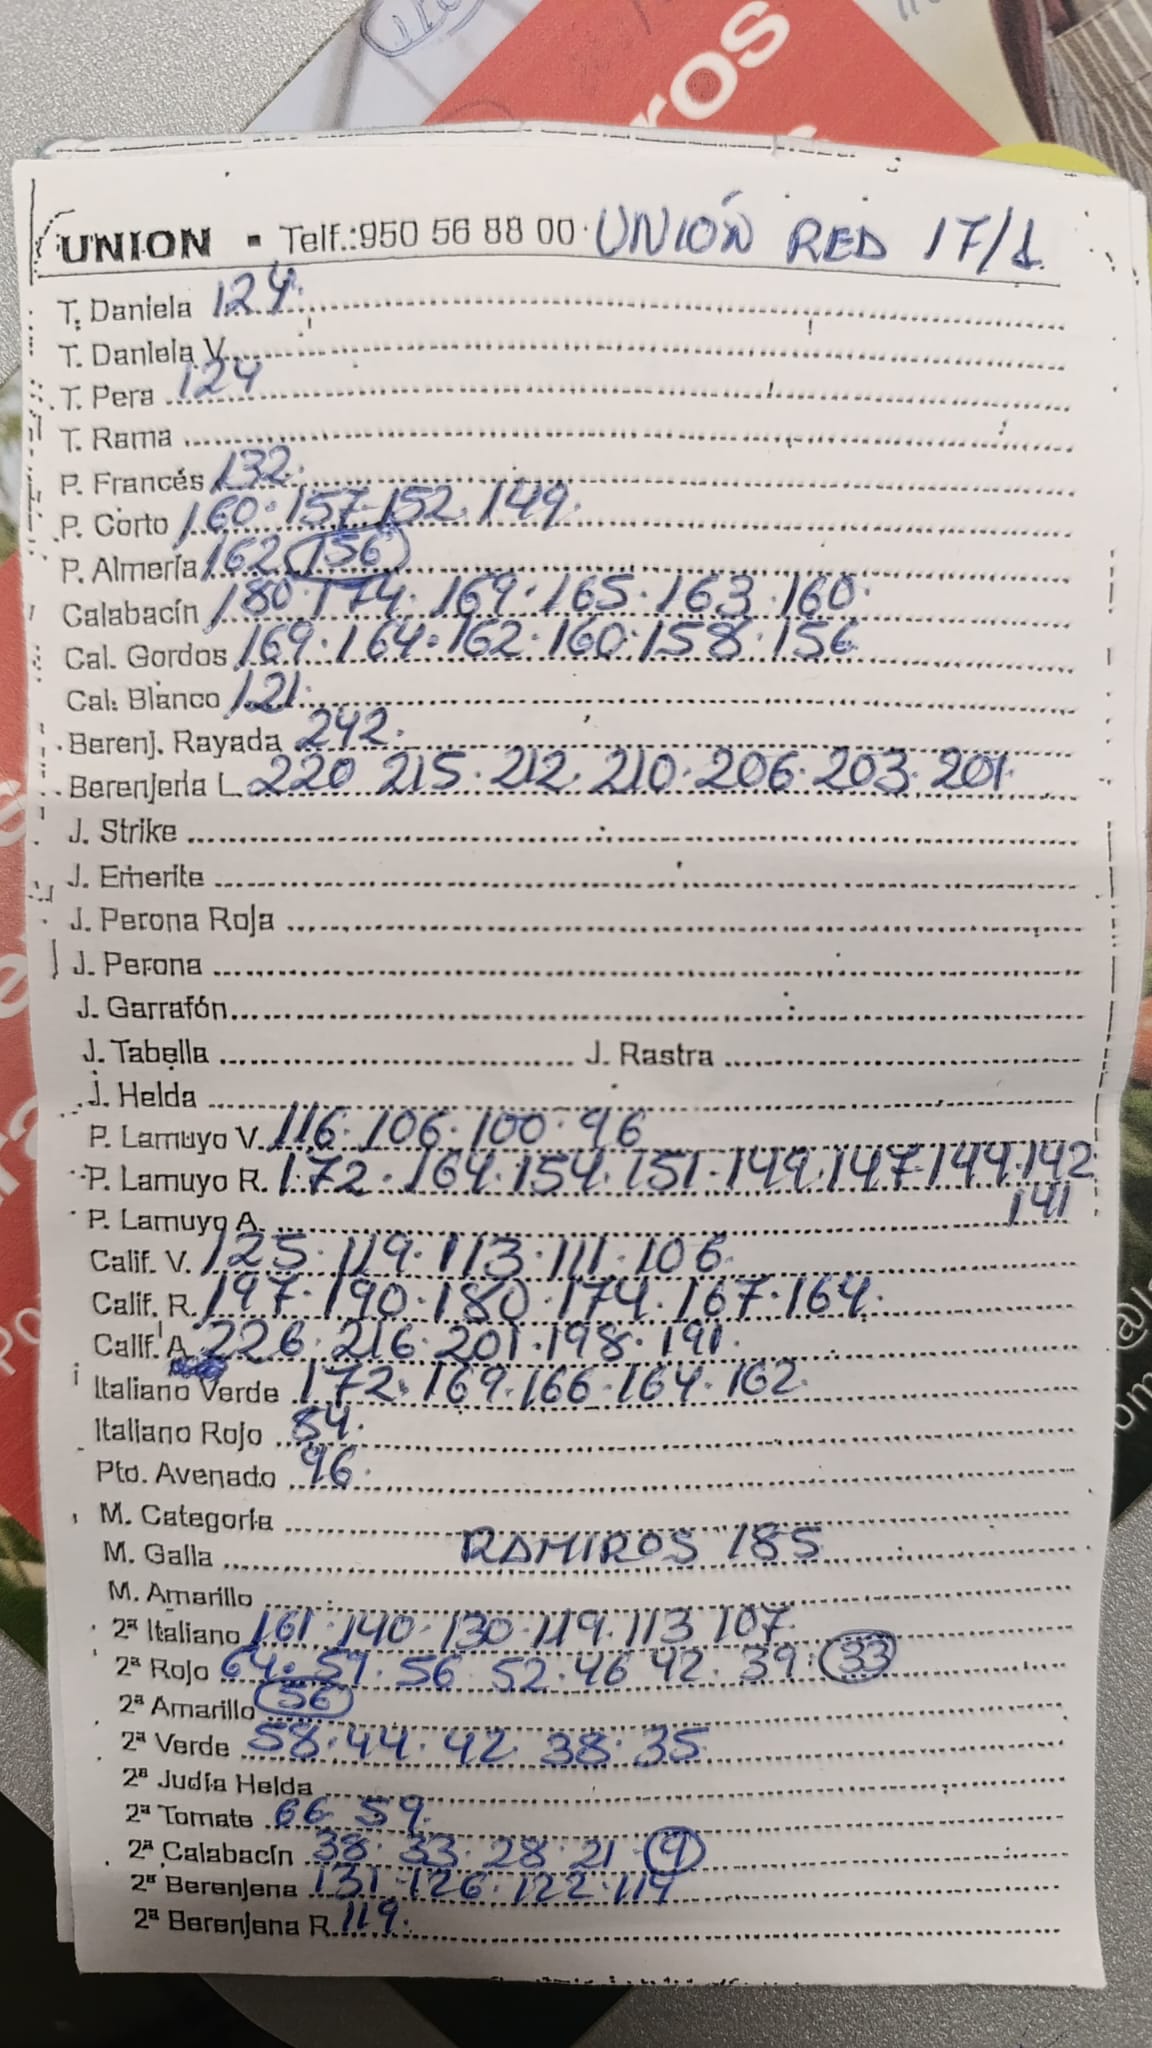 ros
UNION - Telf.:950 56 88 00 UNIÓN RED 17/1
T. Daniela 124
T. Daniela V.
T. Pera 124
T. Rama
P. Francés 132
P. Corto 160 · 157 · 152 · 149
P. Almería 162 156
Calabacín 180 · 174 · 169 · 165 · 163 · 160
Cal. Gordos 169 · 164 · 162 · 160 · 158 · 156
Cal. Blanco 121
Berenj. Rayada 242
Berenjena L. 220 215 · 212 · 210 · 206 · 203 · 201
J. Strike
J. Emerite
J. Perona Roja
J. Perona
J. Garrafón
J. Tabella J. Rastra
J. Helda
P. Lamuyo V. 116 · 106 · 100 · 96
P. Lamuyo R. 172 · 164 · 154 · 151 · 149 · 147 · 144 · 142
141
P. Lamuyo A.
Calif. V. 125 · 119 · 113 · 111 · 106
Calif. R. 197 · 190 · 180 · 174 · 167 · 164
Calif. A. 226 · 216 · 201 · 198 · 191
Italiano Verde 172 · 169 · 166 · 164 · 162
Italiano Rojo 84
Pto. Avenado 96
M. Categoría
M. Galia RAMIROS 185
M. Amarillo
2ª Italiano 161 · 140 · 130 · 119 · 113 107
2ª Rojo 64 · 59 · 56 52 · 46 42 · 39 · 33
2ª Amarillo 56
2ª Verde 58 · 44 · 42 · 38 · 35
2ª Judía Helda
2ª Tomate 66 59
2ª Calabacín 38 · 33 · 28 · 21 · 9
2ª Berenjena 131 · 126 · 122 · 119
2ª Berenjena R. 119